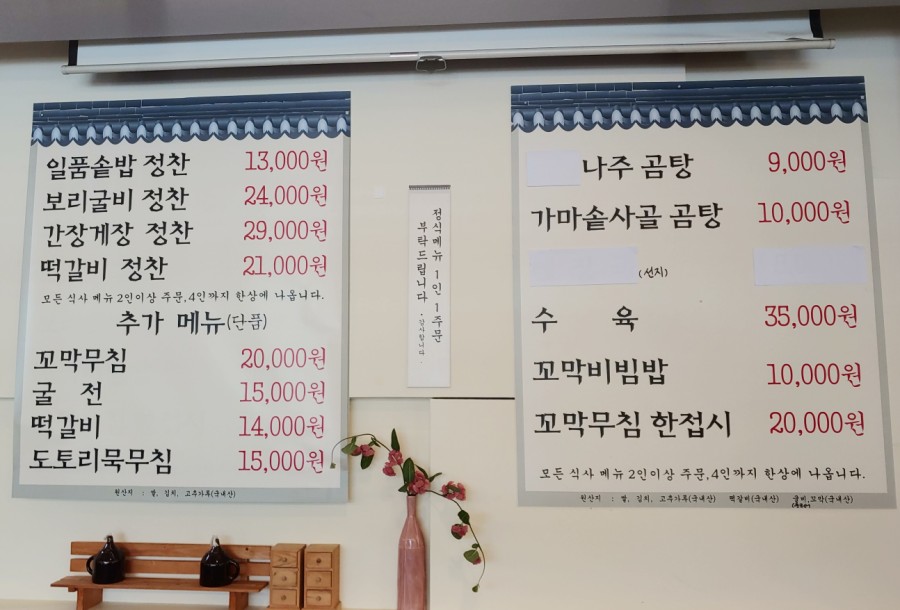 일품솥밥 정찬 13,000원
보리굴비 정찬 24,000원
간장게장 정찬 29,000원
떡갈비 정찬 21,000원
모든 식사 메뉴 2인이상 주문,4인까지 한상에 나옵니다.
추가 메뉴(단품)
꼬막무침 20,000원
굴 전 15,000원
떡갈비 14,000원
도토리묵무침 15,000원
원산지 : 쌀, 김치, 고추가루(국내산)
정식메뉴 1인 1주문
부탁드립니다
*감사합니다.
나주 곰탕 9,000원
가마솥사골 곰탕 10,000원
(선지)
수 육 35,000원
꼬막비빔밥 10,000원
꼬막무침 한접시 20,000원
모든 식사 메뉴 2인이상 주문,4인까지 한상에 나옵니다.
원산지 : 쌀, 김치, 고추가루(국내산) 떡갈비(국내산) 굴비,꼬막(국내산)